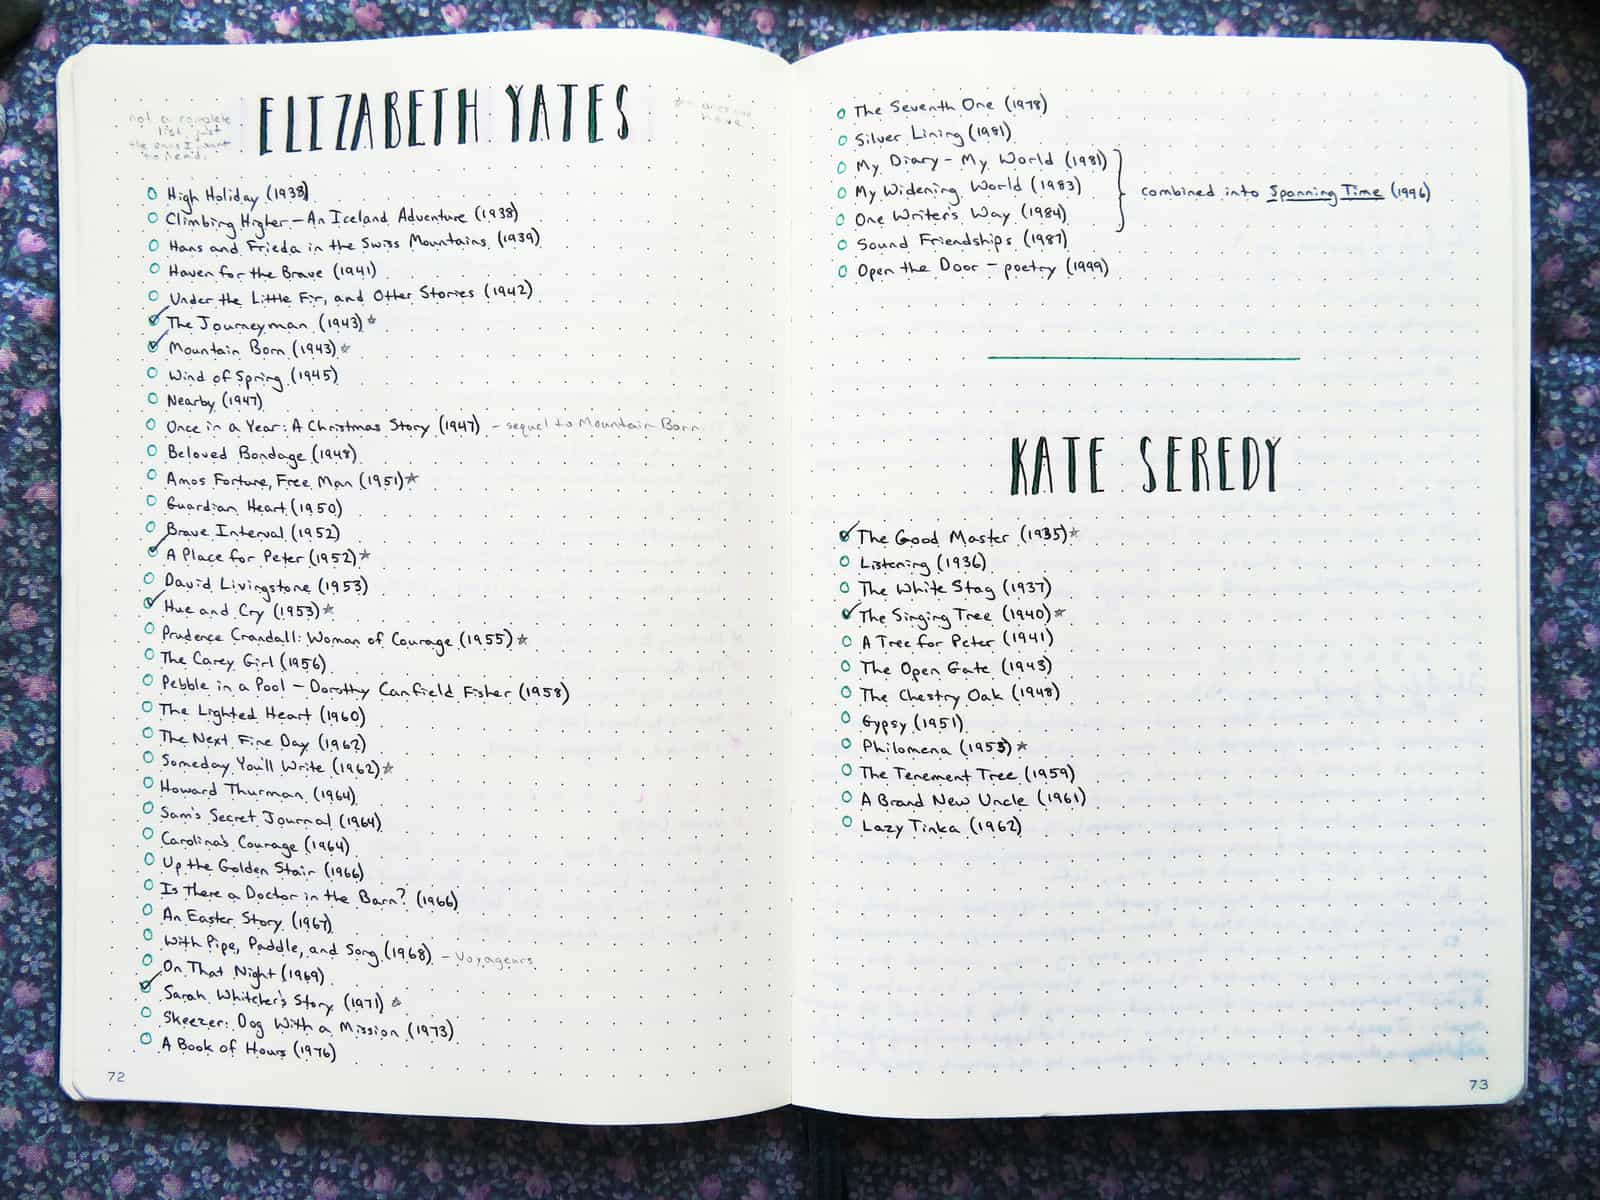 not a complete
list, just
the ones I want
to read.
ELIZABETH YATES
have
High Holiday (1938)
Climbing Higher — An Iceland Adventure (1938)
Hans and Frieda in the Swiss Mountains (1939)
Haven for the Brave (1941)
Under the Little Fir, and Other Stories (1942)
The Journeyman (1943) ☆
Mountain Born (1943) ☆
Wind of Spring (1945)
Nearby (1947)
Once in a Year: A Christmas Story (1947) - sequel to Mountain Born
Beloved Bondage (1948)
Amos Fortune, Free Man (1951) ☆
Guardian Heart (1950)
Brave Interval (1952)
A Place for Peter (1952) ☆
David Livingstone (1953)
Hue and Cry (1953) ☆
Prudence Crandall: Woman of Courage (1955) ☆
The Carey Girl (1956)
Pebble in a Pool — Dorothy Canfield Fisher (1958)
The Lighted Heart (1960)
The Next Fine Day (1962)
Someday You'll Write (1962) ☆
Howard Thurman (1964)
Sam's Secret Journal (1964)
Carolina's Courage (1964)
Up the Golden Stair (1966)
Is There a Doctor in the Barn? (1966)
An Easter Story (1967)
With Pipe, Paddle, and Song (1968) - Voyageurs
On That Night (1969)
Sarah Whitcher's Story (1971) ☆
Skeezer: Dog With a Mission (1973)
A Book of Hours (1976)
72
The Seventh One (1978)
Silver Lining (1981)
My Diary - My World (1981)
My Widening World (1983) combined into Spanning Time (1996)
One Writer's Way (1984)
Sound Friendships (1987)
Open the Door - poetry (1999)
KATE SEREDY
The Good Master (1935) ☆
Listening (1936)
The White Stag (1937)
The Singing Tree (1940) ☆
A Tree for Peter (1941)
The Open Gate (1943)
The Chestry Oak (1948)
Gypsy (1951)
Philomena (1955) ☆
The Tenement Tree (1959)
A Brand New Uncle (1961)
Lazy Tinka (1962)
73